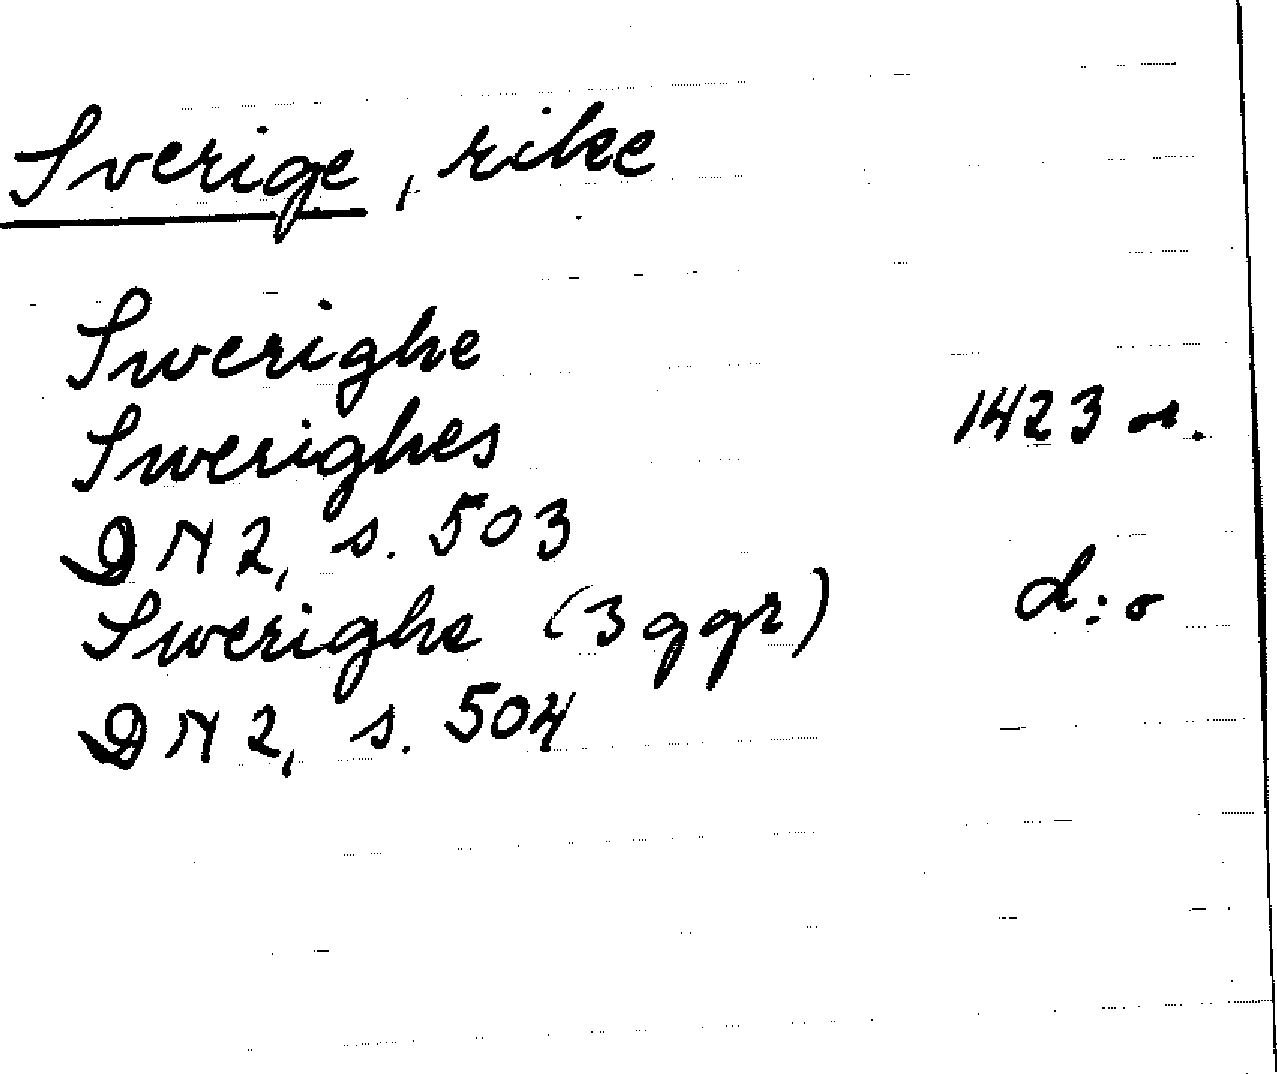 Sverige, rike
Swerighe
Swerighes 1423 or.
DN 2, s. 503
Swerighe (3 ggr) d:o
DN 2, s. 504